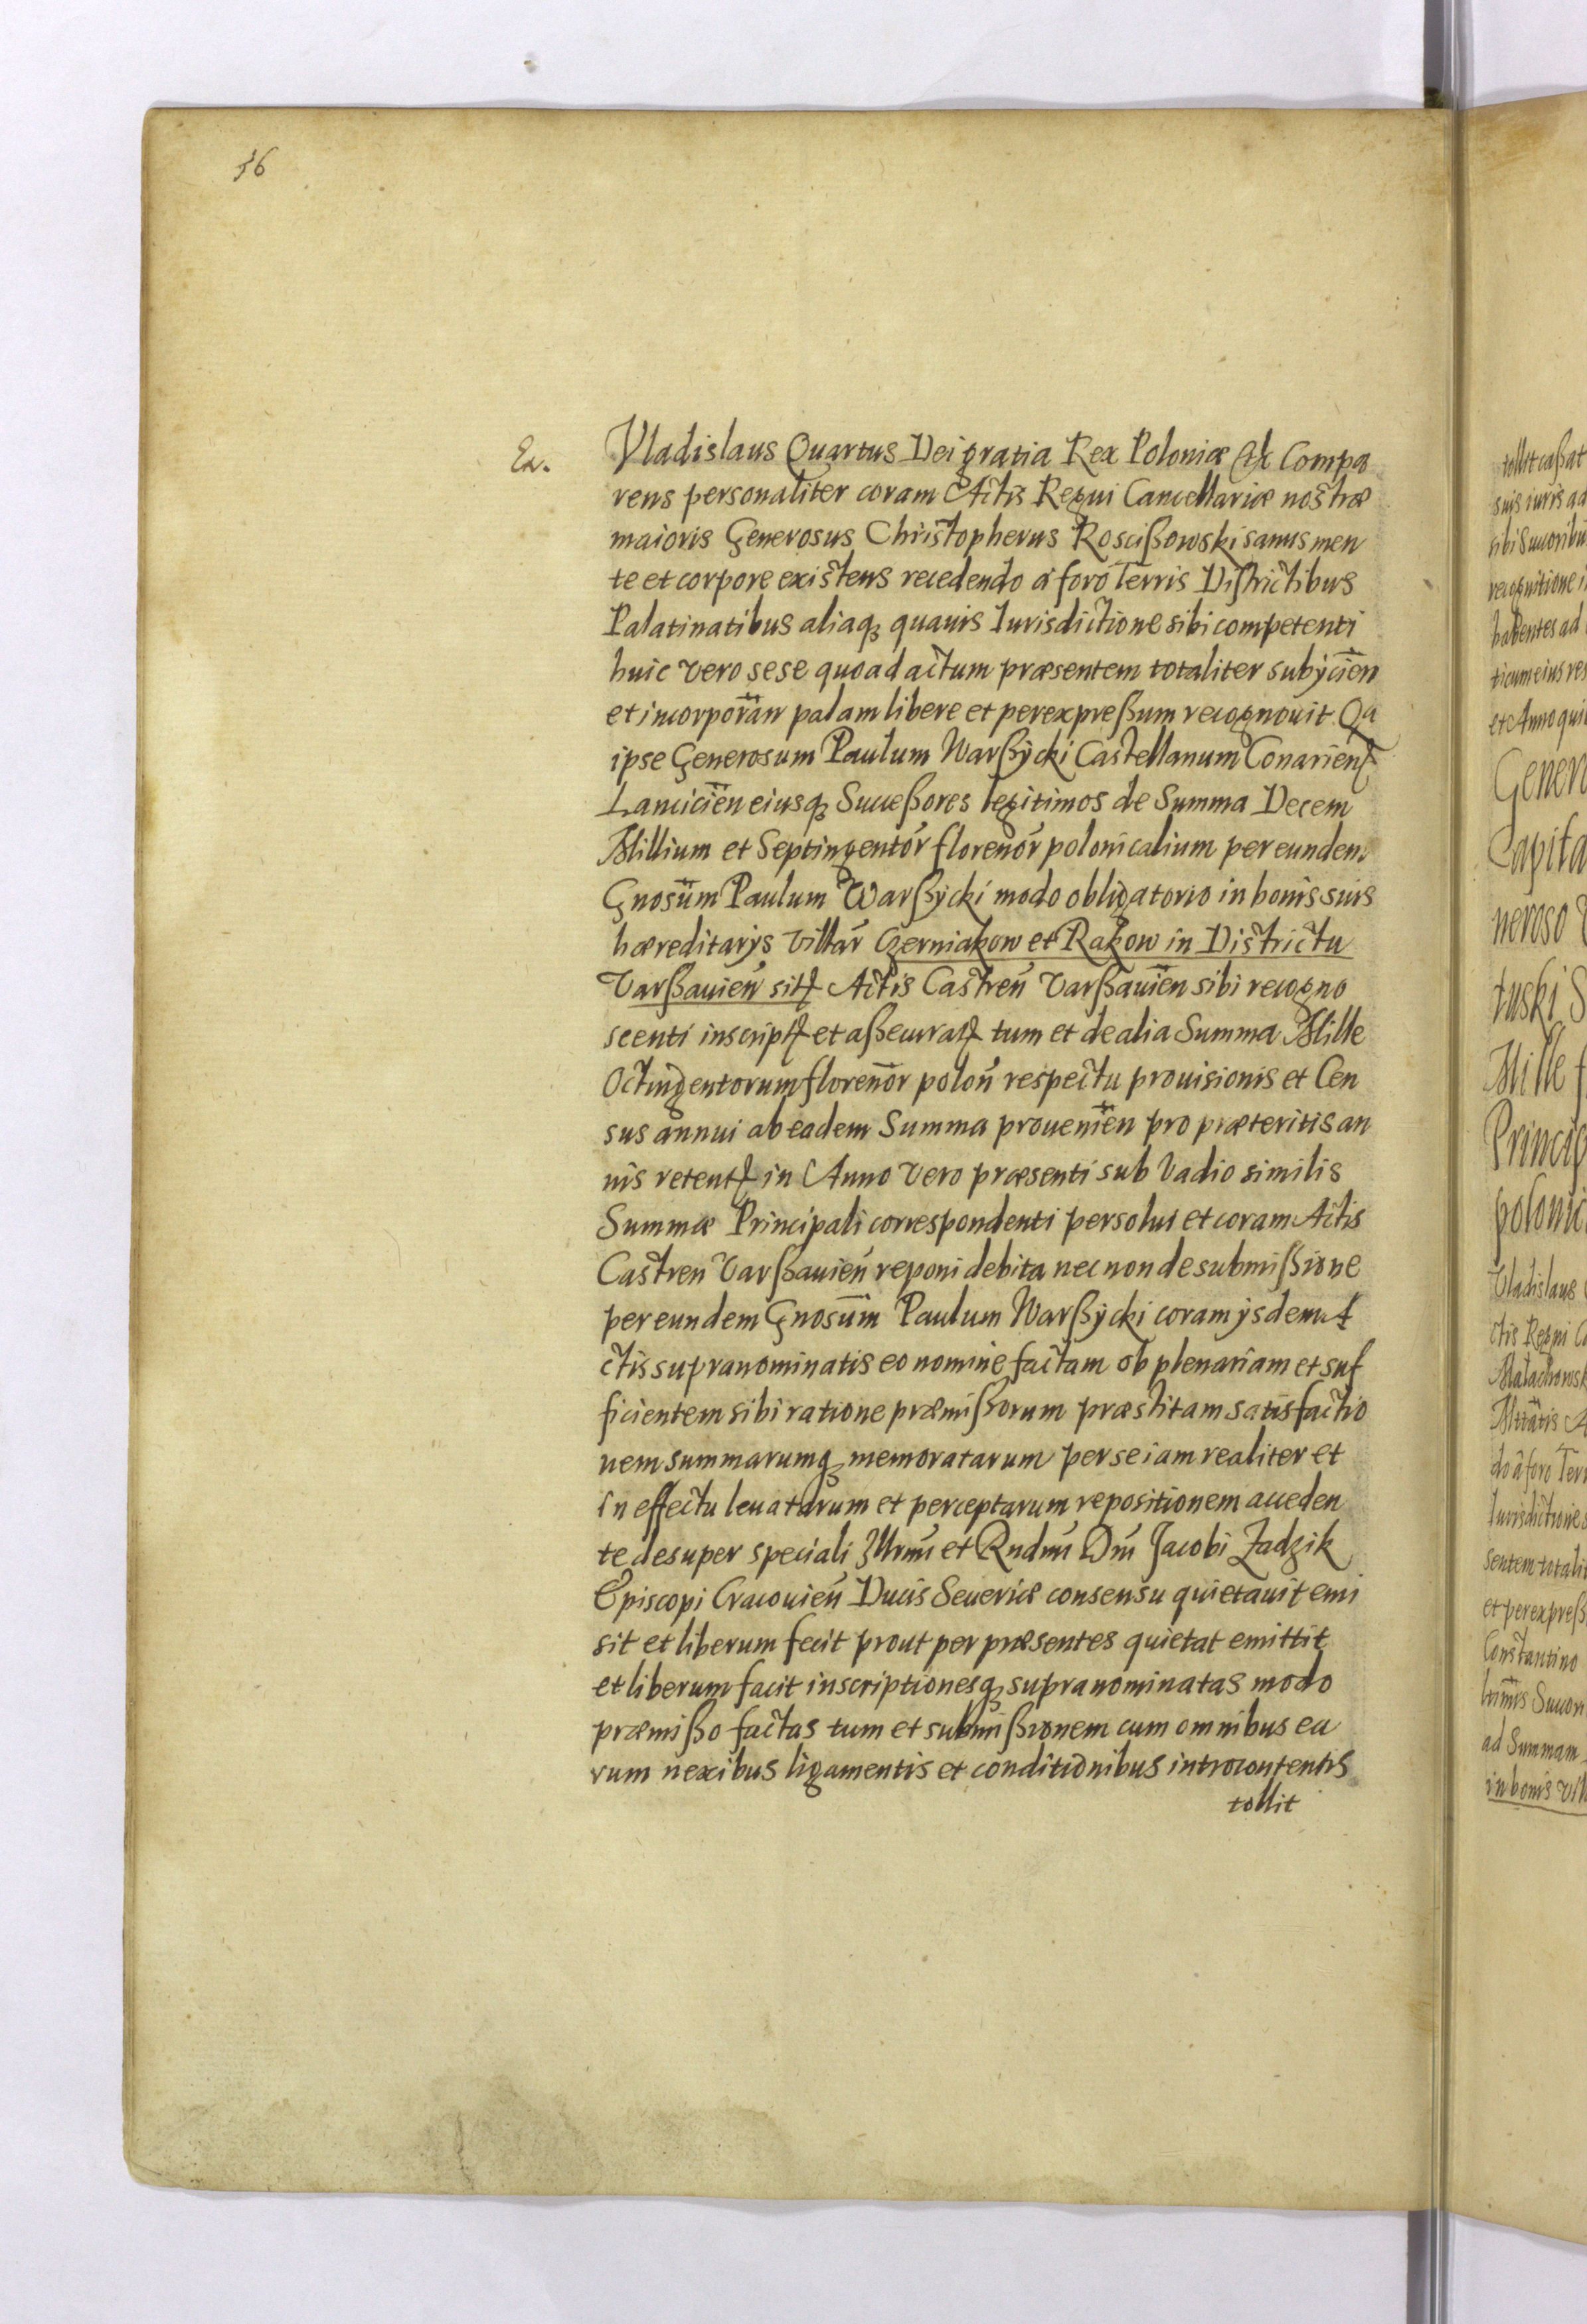 36
Ex. Vladislaus Quartus Dei gratia Rex Poloniæ etc Compa
rens personaliter coram Actis Regni Cancellariæ nostræ
maioris Generosus Christopherus Roscißowski sanus men
te et corpore existens recedendo à foro Terris Districtibus
Palatinatibus aliaq quauis Iurisdictione sibi competenti
huic vero sese quoad actum præsentem totaliter subÿcien
et incorporan palam libere et perexpreßum recognouit Qa
ipse Generosum Paulum Warßÿcki Castellanum Conarien
Lancicien eiusq Sucießores legitimos de Summa Decem
Millium et Septingentor florenor polonicalium per eundem
Gnosum Paulum Warßÿcki modo obligatorio in bonis suis
hæreditarÿs villar Czerniakow et Rakow in Districtu
Varßauien sit Actis Castren Varßauien sibi recogno
scenti inscript et aßecurat tum et de alia Summa Mille
Octingentorum florenor polon respectu prouisionis et Cen
sus annui ab eadem Summa prouenien pro præteritis an
nis retent in Anno vero præsenti sub vadio similis
Summæ Principali correspondenti persolui et coram Actis
Castren Varßauien reponi debita nec non de submißione
per eundem Gnosum Paulum Warßÿcki coram ÿsdem A
ctis supranominatis eo nomine factam ob plenariam et suf
ficientem sibi ratione præmißorum præstitam satisfactio
nem summarumq memoratarum per se iam realiter et
in effectu leuatarum et perceptarum repositionem acceden
te desuper speciali Illrmi et Rndmi Dni Jacobi Zadzik
Episcopi Cracouien Ducis Seueriæ consensu quietauit emi
sit et liberum fecit prout per præsentes quietat emittit
et liberum facit inscriptionesq supranominatas modo
præmißo factas tum et submißionem cum omnibus ea
rum nexibus ligamentis et conditionibus introcontentis
tollit
tollit caßat
suis iuris ad
sibi Succoribu
recognitione i
habentes ad
ticum eius res
et Anno qui
Genero
Capita
neroso
tuski S
Mille f
Princip
polonic
Vladislaus
ctis Regni C
Malachowsk
Mttatis A
do â foro Terr
Iurisdictione
sentem totali
et perexpreß
Constantino
ad Summam
in bonis vill